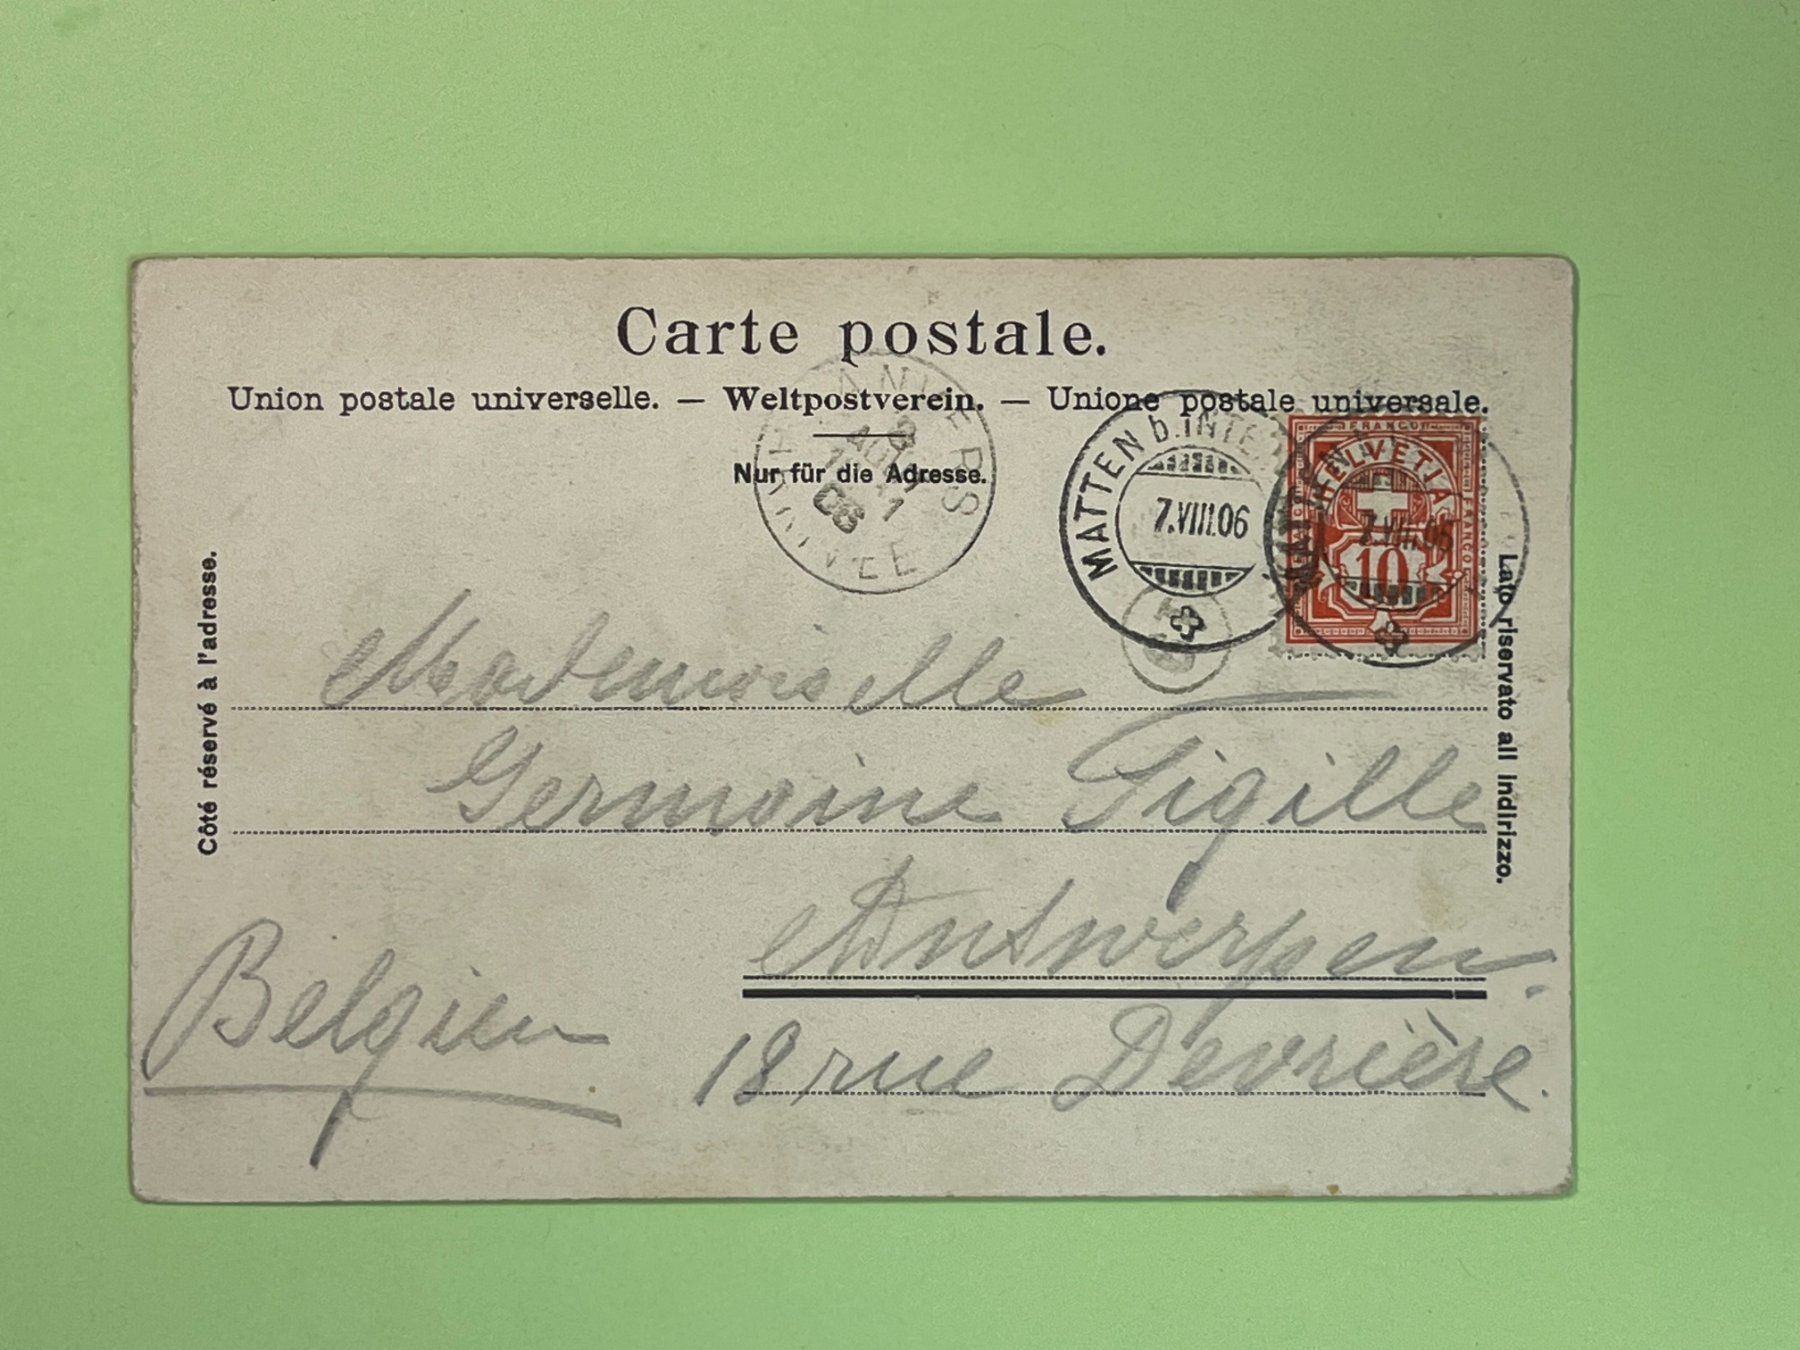 Carte postale.
Union postale universelle. — Weltpostverein. — Unione postale universale.
Nur für die Adresse.
Côté réservé à l'adresse.
Lato riservato all indirizzo.
MATTEN b. INTE
7.VIII.06
MATTEN
7.VIII.06
FRANCO
HELVETIA
FRANCO
10
ANVERS
8
AOUT
06
ARRIVEE
Mademoiselle
Germaine Gigille
Antwerpen.
Belgien
18 rue Devrière.